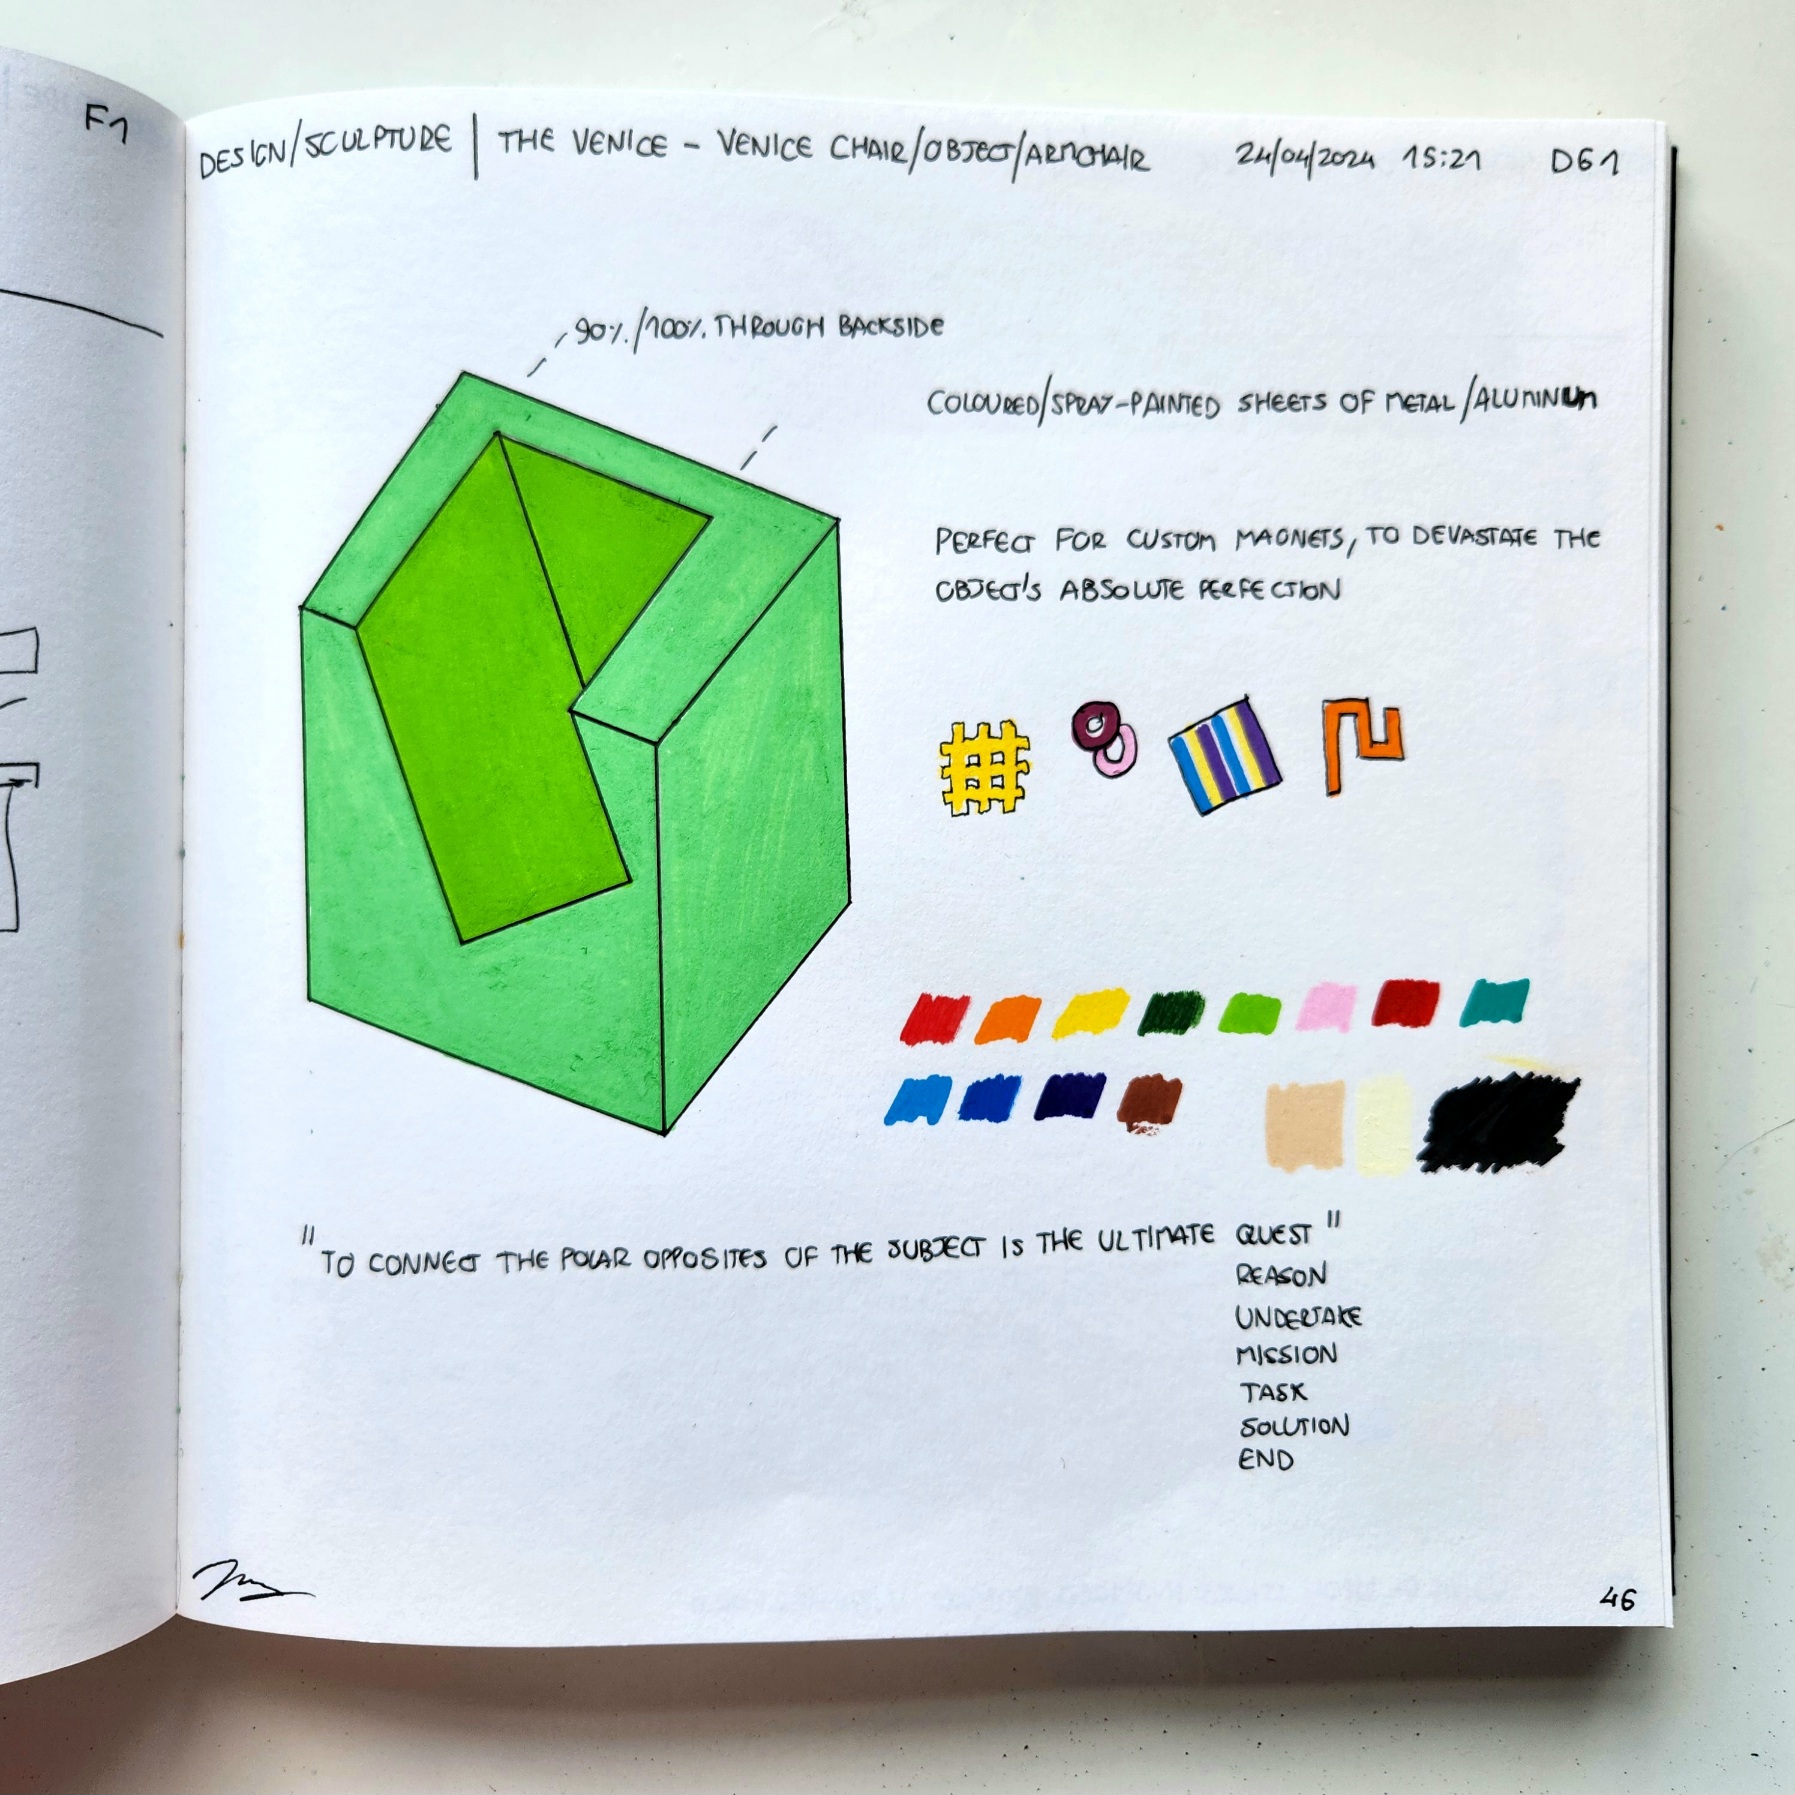 F1
DESIGN/SCULPTURE | THE VENICE - VENICE CHAIR/OBJECT/ARMCHAIR 24/04/2024 15:21 D61
90%/100% THROUGH BACKSIDE
COLOURED/SPRAY-PAINTED SHEETS OF METAL/ALUMINUM
PERFECT FOR CUSTOM MAGNETS, TO DEVASTATE THE
OBJECT'S ABSOLUTE PERFECTION
"TO CONNECT THE POLAR OPPOSITES OF THE SUBJECT IS THE ULTIMATE QUEST"
REASON
UNDERTAKE
MISSION
TASK
SOLUTION
END
46